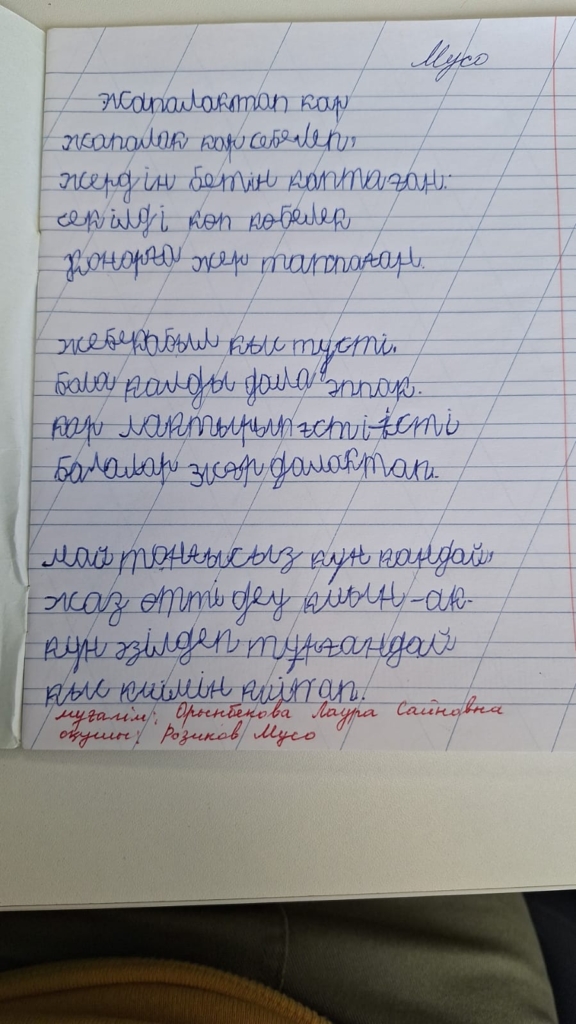 Мусо
жапалактап кар
жапалак кар себелеп,
жердін бетін каптаған.
секілді көп көбелек
Қонорға жер таппаған.
кыс тусті.
бала калды дала әппак.
кар лактырып єсті-єсті
балалар жәрдалактап.
май тоңғысыз күн кандай,
жаз өтті деу қиын-ак.
күн әзілдеп тұрғандай
кыс киімін киіп ап.
мұғалім: Орынбекова Лаура Сайновна
оқушы: Розиков Мусо